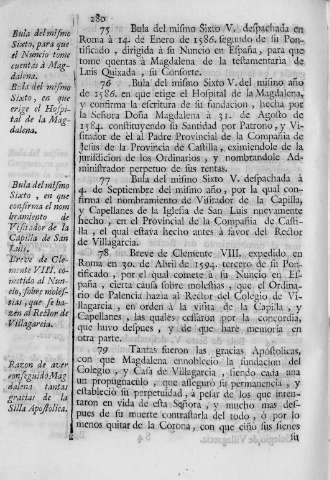 280
Bula del mismo
Sixto, para que
el Nuncio tome
cuentas à Mag-
dalena.
Bula del mismo
Sixto, en que
erige el Hospi-
tal de la Mag-
dalena.
Bula del mismo
Sixto, en que
confirma el nom
bramiento de
Visitador de la
Capilla de San
Luis.
Breve de Cle-
mente VIII. co-
metido al Nun-
cio, sobre moles-
tias, que se ha-
zen al Rector de
Villagarcia.
Razon de aver
conseguido Mag
dalena tantas
gracias de la
Silla Apostolica.
75 Bula del mismo Sixto V. despachada en
Roma à 14. de Enero de 1586. segundo de su Pon-
tificado, dirigida à su Nuncio en España, para que
tome quentas à Magdalena de la testamentaria de
Luis Quixada, su Consorte.
76 Bula del mismo Sixto V. del mismo año
de 1586. en que erige el Hospital de la Magdalena,
y confirma la escritura de su fundacion, hecha por
la Señora Doña Magdalena à 31. de Agosto de
1584. constituyendo su Santidad por Patrono, y Vi-
sitador de èl al Padre Provincial de la Compañia de
Jesus de la Provincia de Castilla, eximiendole de la
jurisdicion de los Ordinarios, y nombrandole Ad-
ministrador perpetuo de sus rentas.
77 Bula del mismo Sixto V. despachada à
4. de Septiembre del mismo año, por la qual con-
firma el nombramiento de Visitador de la Capilla,
y Capellanes de la Iglesia de San Luis nuevamente
hecho, en el Provincial de la Compañia de Casti-
lla, el qual estava hecho antes à favor del Rector
de Villagarcia.
78 Breve de Clemente VIII. expedido en
Roma en 30. de Abril de 1594. tercero de su Pon-
tificado, por el qual comete à su Nuncio en Es-
paña, cierta causa sobre molestias, que el Ordina-
rio de Palencia hazia al Rector del Colegio de Vi-
llagarcia, en orden à la visita de la Capilla, y
Capellanes, las quales cessaron por la concordia,
que huvo despues, y de que harè memoria en
otra parte.
79 Tantas fueron las gracias Apostolicas,
con que Magdalena ennobleciò la fundacion del
Colegio, y Casa de Villagarcia, siendo cada una
un propugnaculo, que assegurò su permanencia, y
estableciò su perpetuidad, à pesar de los que inten-
taron en vida de esta Señora, y mucho mas des-
pues de su muerte contrastarla del todo, ò por lo
menos quitar de la Corona, con que ciñò sus sienes
su